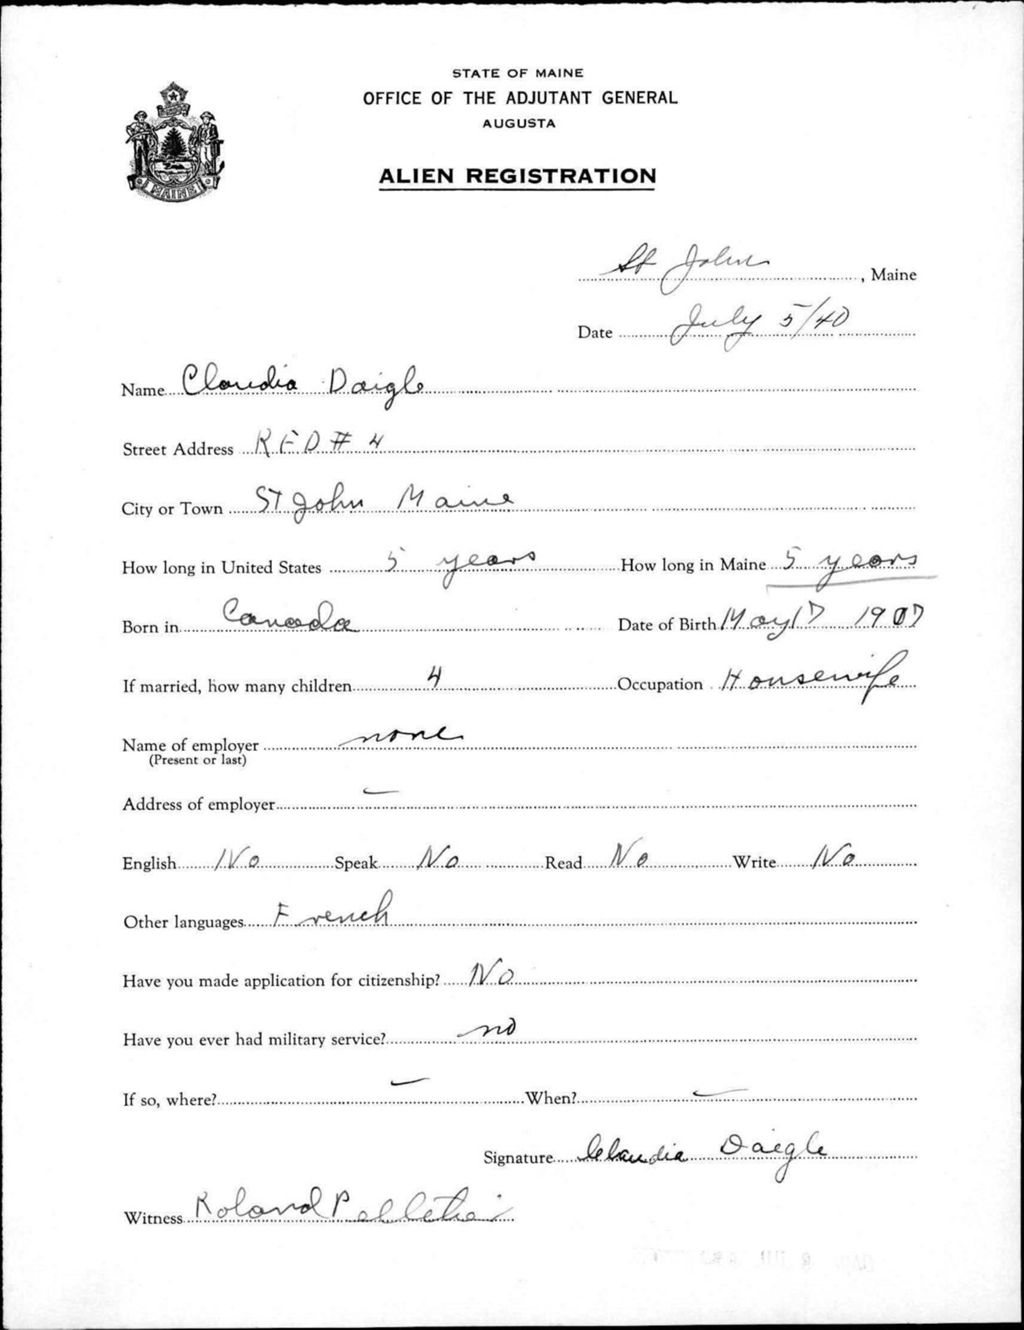 STATE OF MAINE
OFFICE OF THE ADJUTANT GENERAL
AUGUSTA
ALIEN REGISTRATION
MAINE
St John, Maine
Date July 5/40
Name Claudia Daigle
Street Address RFD # 4
City or Town ST John Maine
How long in United States 5 years How long in Maine 5 years
Born in Canada Date of Birth May 17 1907
If married, how many children 4 Occupation Housewife
Name of employer none
(Present or last)
Address of employer —
English No Speak No Read No Write No
Other languages French
Have you made application for citizenship? No
Have you ever had military service? no
If so, where? — When? —
Signature Claudia Daigle
Witness Roland Pelletier